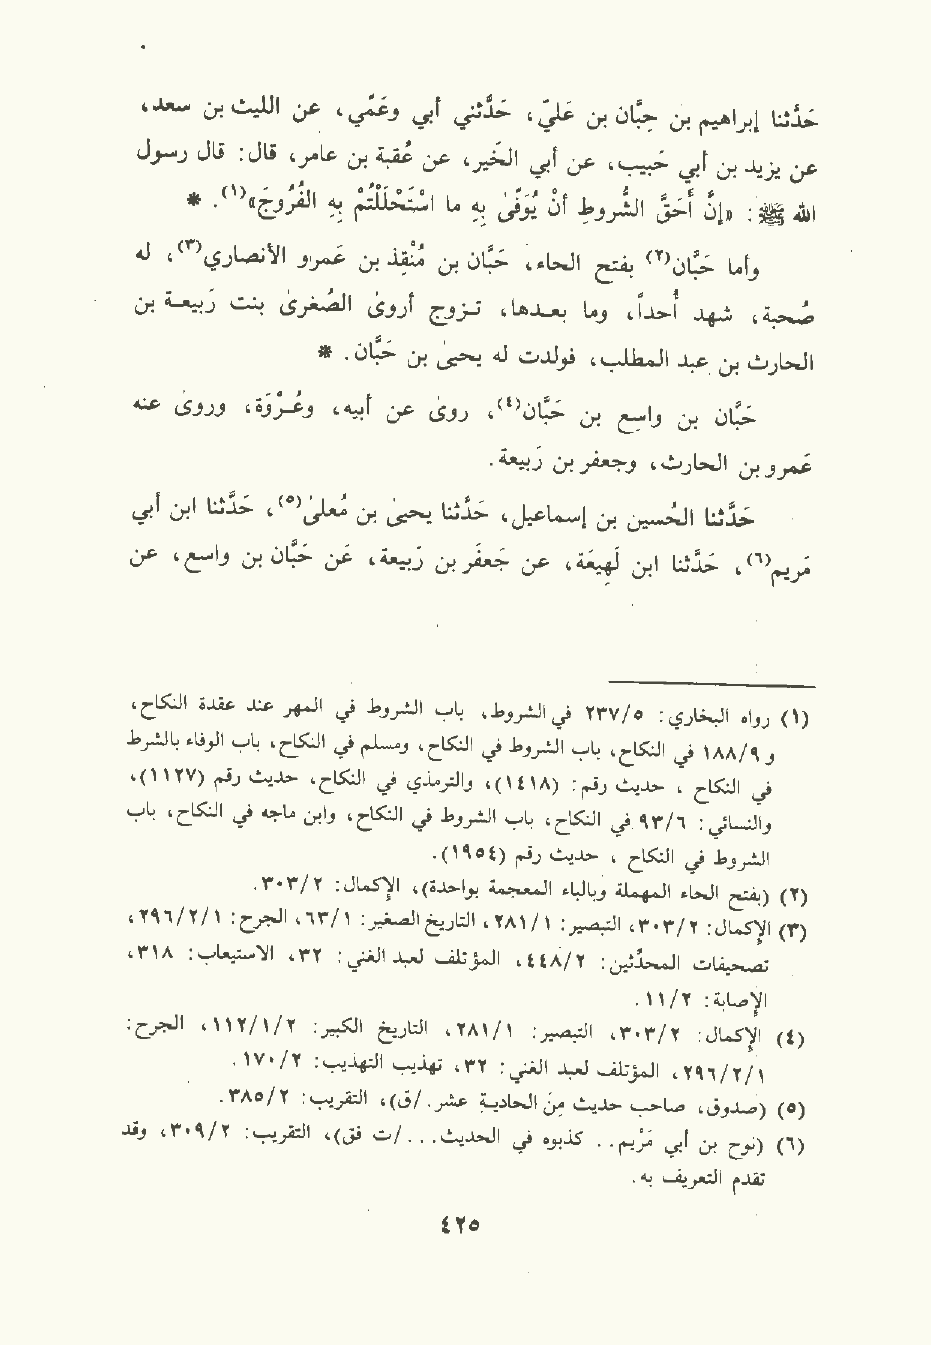 حَدَّثنا إبراهيم بن حِبَّان بن عَليّ، حَدَّثني أبي وعَمِّي، عن الليث بن سعد،
عن يزيد بن أبي حَبيب، عن أبي الخَير، عن عُقبة بن عامر، قال: قال رسول
الله ﷺ: «إنَّ أَحَقَّ الشُّروطِ أنْ يُوَفىٰ بِهِ ما اسْتَحْلَلْتُمْ بِهِ الفُرُوجَ»(١). *
وأما حَبَّان(٢) بفتح الحاء، حَبَّان بن مُنْقِذ بن عَمرو الأنصاري(٣)، له
صُحبة، شهد أُحداً، وما بعدها، تزوج أروىٰ الصُغرىٰ بنت رَبيعة بن
الحارث بن عبد المطلب، فولدت له يحيىٰ بن حَبَّان. *
حَبَّان بن واسع بن حَبَّان(٤)، روىٰ عن أبيه، وعُرْوَة، وروىٰ عنه
عَمرو بن الحارث، وجعفر بن رَبيعة.
حَدَّثنا الحُسين بن إسماعيل، حَدَّثنا يحيىٰ بن مُعلىٰ(٥)، حَدَّثنا ابن أبي
مَريم(٦)، حَدَّثنا ابن لَهِيعَة، عن جَعفَر بن رَبيعة، عَن حَبَّان بن واسع، عن
(١) رواه البخاري: ٢٣٧/٥ في الشروط، باب الشروط في المهر عند عقدة النكاح،
و ١٨٨/٩ في النكاح، باب الشروط في النكاح، ومسلم في النكاح، باب الوفاء بالشرط
في النكاح ، حديث رقم: (١٤١٨)، والترمذي في النكاح، حديث رقم (١١٢٧)،
والنسائي: ٩٣/٦ في النكاح، باب الشروط في النكاح، وابن ماجه في النكاح، باب
الشروط في النكاح ، حديث رقم (١٩٥٤).
(٢) (بفتح الحاء المهملة وبالباء المعجمة بواحدة)، الإكمال: ٣٠٣/٢.
(٣) الإكمال: ٣٠٣/٢، التبصير: ٢٨١/١، التاريخ الصغير: ٦٣/١، الجرح: ٢٩٦/٢/١،
تصحيفات المحدِّثين: ٤٤٨/٢، المؤتلف لعبد الغني: ٣٢، الاستيعاب: ٣١٨،
الإصابة: ١١/٢.
(٤) الإكمال: ٣٠٣/٢، التبصير: ٢٨١/١، التاريخ الكبير: ١١٢/١/٢، الجرح:
٢٩٦/٢/١، المؤتلف لعبد الغني: ٣٢، تهذيب التهذيب: ١٧٠/٢.
(٥) (صدوق، صاحب حديث مِنَ الحادية عشر./ق)، التقريب: ٣٨٥/٢.
(٦) (نوح بن أبي مَرْيم.. كذبوه في الحديث.../ت فق)، التقريب: ٣٠٩/٢، وقد
تقدم التعريف به.
٤٢٥